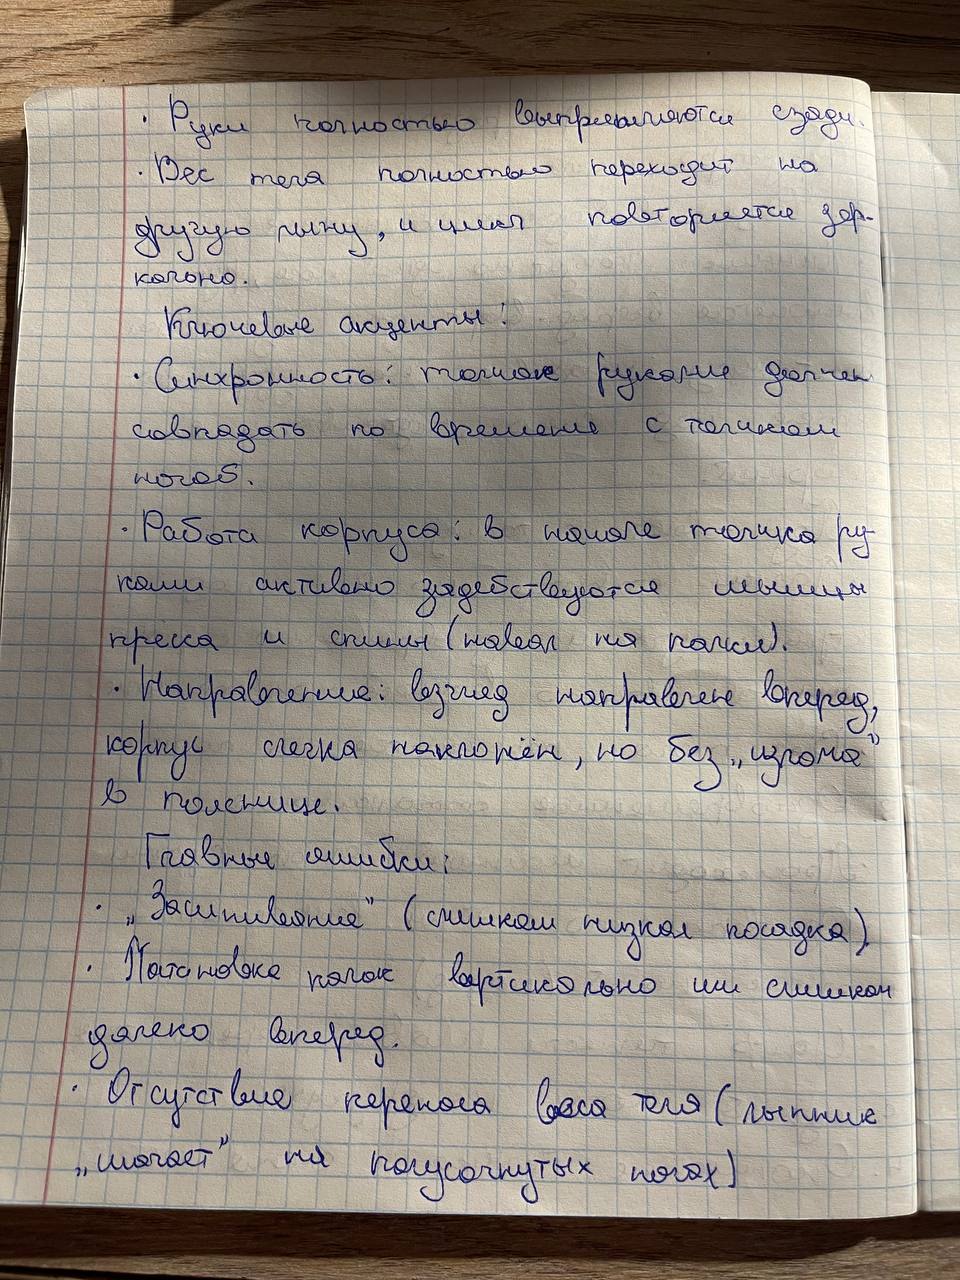 · Руки полностью выпрямляются сзади.
· Вес тела полностью переходит на
другую лыжу, и цикл повторяется зер-
кально.
Ключевые акценты:
· Синхронность: толчок руками должен
совпадать по времени с толчком
ногой.
· Работа корпуса: в начале толчка ру
ками активно задействуются мышцы
пресса и спины (навал на палки).
· Направление: взгляд направлен вперед,
корпус слегка наклонён, но без „излома”
в пояснице.
Главные ошибки:
· „Засиживание” (слишком низкая посадка)
· Постановка палок вертикально или слишком
далеко вперед.
· Отсутствие переноса веса тела (лыжник
„шагает” на полусогнутых ногах)